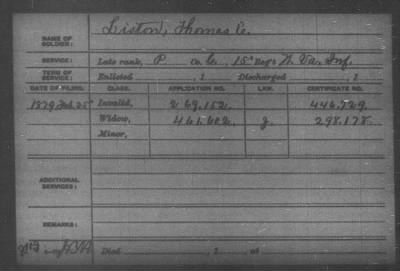 NAME OF SOLDIER: Liston, Thomas C.
SERVICE: Late rank, P Co. C, 15" Reg't W. Va. Inf.
TERM OF SERVICE: Enlisted , 1 Discharged , 1
DATE OF FILING. CLASS. APPLICATION NO. LAW. CERTIFICATE NO.
1879 Feb. 25" Invalid, 269.152. 446.729.
Widow, 461.602. g. 298.178.
Minor,
ADDITIONAL SERVICES:
REMARKS:
Died , 1 , at